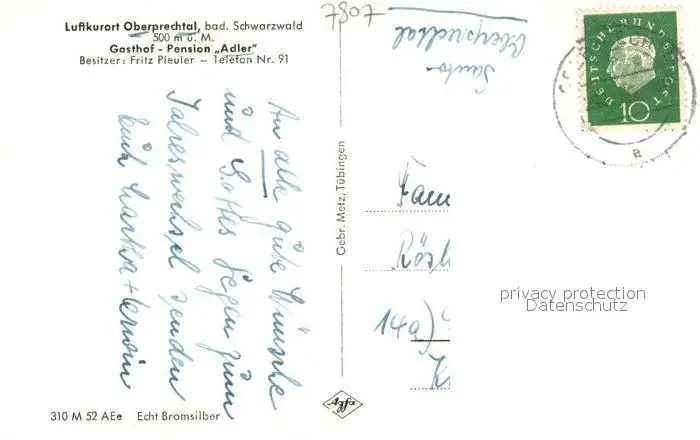 Luftkurort Oberprechtal, bad. Schwarzwald
500 m ü. M.
Gasthof - Pension „Adler"
Besitzer: Fritz Pleuler — Telefon Nr. 91
An alle gute Wünsche
und Gottes Segen zum
Jahreswechsel senden
Euch Martha + Erwin
310 M 52 AEe Echt Bromsilber
Gebr. Metz, Tübingen
Agfa
7087
Oberprechtal
DEUTSCHE BUNDESPOST
10
a
Fam
Rösl
14a)
K
privacy protection
Datenschutz